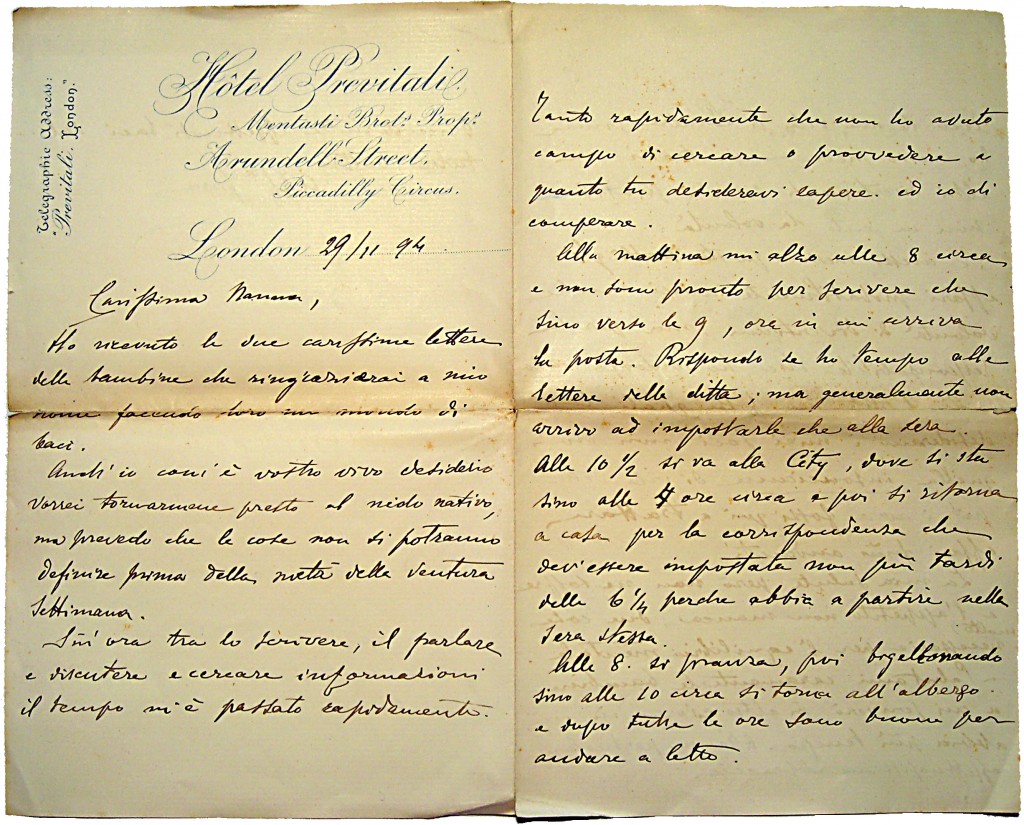 Telegraphic Address:
"Previtali, London."
Hôtel Previtali.
Mentasti Brots. Props.
Arundell Street.
Piccadilly Circus.
London 29/11 94
Carissima Nanna,
Ho ricevuto le due carissime lettere
delle bambine che ringrazierai a mio
nome facendo loro un mondo di
baci.
Anch'io com'è vostro vivo desiderio
vorrei tornarmene presto al nido nativo,
ma prevedo che le cose non si potranno
definire prima della metà della ventura
settimana.
Sin'ora tra lo scrivere, il parlare
e discutere e cercare informazioni
il tempo m'è passato rapidamente.
Tanto rapidamente che non ho avuto
campo di cercare o provvedere a
quanto tu desideravi sapere. ed io di
comperare.
Alla mattina mi alzo alle 8 circa,
e non sono pronto per scrivere che
sino verso le 9, ora in cui arriva
la posta. Rispondo se ho tempo alle
lettere della ditta; ma generalmente non
arrivo ad impostarle che alla sera.
Alle 10 1/2 si va alla City, dove si sta
sino alle 4 ore circa e poi si ritorna
a casa per la corrispondenza che
dev'essere impostata non più tardi
delle 6 1/4 perche abbia a partire nella
sera stessa.
Alle 8. si pranza, poi
sino alle 10 circa si torna all'albergo.
e dopo tutte le ore sono buone per
andare a letto.